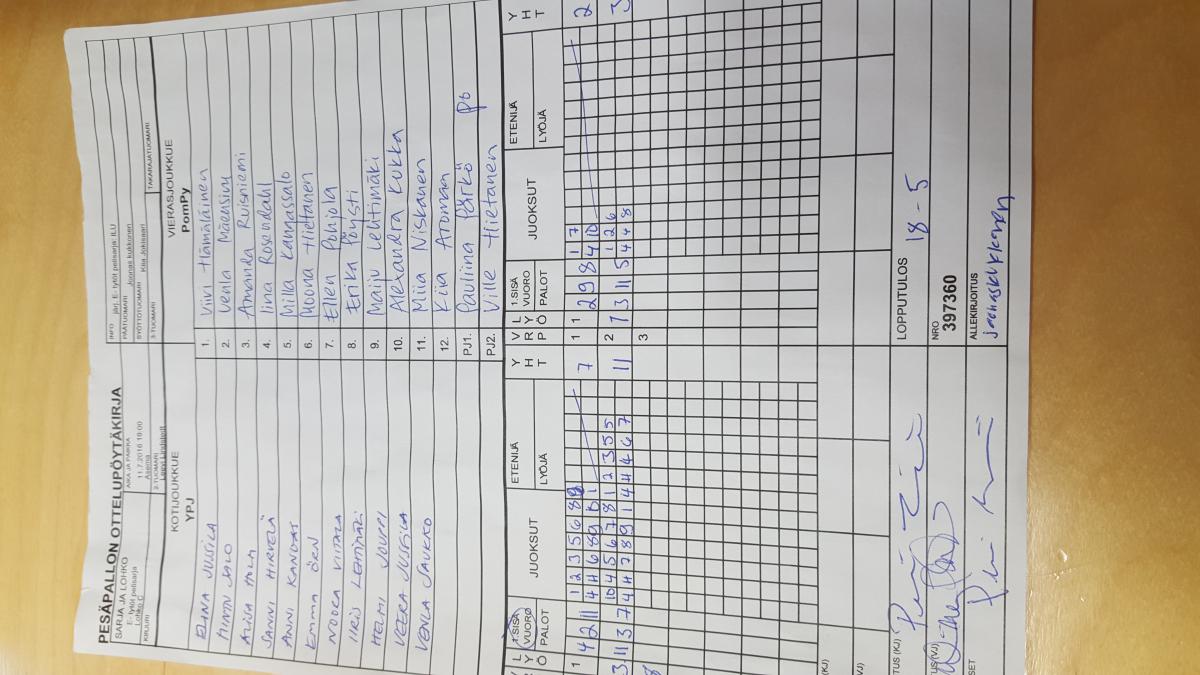 PESÄPALLON OTTELUPÖYTÄKIRJA
SARJA JA LOHKO
E- tytöt pelisarja
Lohko C
AIKA JA PAIKKA
11.7.2016 19:00
Asema
KIRJURI
2-TUOMARI
INFO järj. E- tytöt pelisarja: ILU
PÄÄTUOMARI Joonas kukkonen
SYÖTTÖTUOMARI Kiia Jokisaari
3-TUOMARI
TAKARAJATUOMARI
KOTIJOUKKUE
YPJ
VIERASJOUKKUE
PomPy
ELINA JUSSILA
1. Viivi Hämäläinen
SALO
2. Venla Mäensivu
3. Amanda Ruisniemi
SANNI HIRVELÄ
4. Iina Rosendahl
ANNI KANDAT
5. Milla Kangassalo
EMMA ÖRN
6. Noona Hietanen
NOORA VIITALA
7. Ellen Pohjola
IIRIS LEHTIMÄKI
8. Erika Pöysti
HELMI JOUPPI
9. Maiju Lehtimäki
VEERA JUSSILA
10. Alexandra Kukka
VENLA SAUKKO
11. Miia Niskanen
12. Kiia Aroman
PJ1. Pauliina Pärkö
PJ2. Ville Hietanen
1.SISÄ
VUORO
PALOT
JUOKSUT
ETENIJÄ
LYÖJÄ
Y H T
V R P
L Y Ö
1.SISÄ
VUORO
PALOT
JUOKSUT
ETENIJÄ
LYÖJÄ
Y H T
1 4 2 11
1 2 3 5 6 8
7
1 1 2 9 8
1 7
4 10
2
3 11 3 7
10 4 5 6 7 8 1 2 3 5 5
4 4 7 8 9 1 4 4 4 6 7
11
2 7 3 11 5
1 2 6
4 4 8
3
3
(KJ)
VJ)
TUS (KJ)
LOPPUTULOS 18 - 5
TUS (VJ)
NRO
397360
SET
ALLEKIRJOITUS